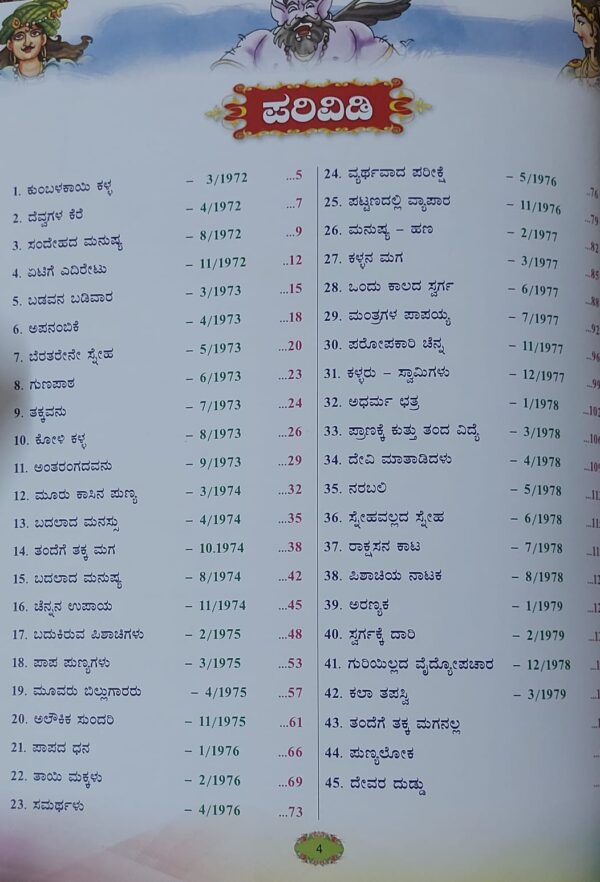 ಪರಿವಿಡಿ
1. ಕುಂಬಳಕಾಯಿ ಕಳ್ಳ – 3/1972 ...5
2. ದೆವ್ವಗಳ ಕೆರೆ – 4/1972 ...7
3. ಸಂದೇಹದ ಮನುಷ್ಯ – 8/1972 ...9
4. ಏಟಿಗೆ ಎದಿರೇಟು – 11/1972 ...12
5. ಬಡವನ ಬಡಿವಾರ – 3/1973 ...15
6. ಅಪನಂಬಿಕೆ – 4/1973 ...18
7. ಬೆರತರೇನೇ ಸ್ನೇಹ – 5/1973 ...20
8. ಗುಣಪಾಠ – 6/1973 ...23
9. ತಕ್ಕವನು – 7/1973 ...24
10. ಕೋಳಿ ಕಳ್ಳ – 8/1973 ...26
11. ಅಂತರಂಗದವನು – 9/1973 ...29
12. ಮೂರು ಕಾಸಿನ ಪುಣ್ಯ – 3/1974 ...32
13. ಬದಲಾದ ಮನಸ್ಸು – 4/1974 ...35
14. ತಂದೆಗೆ ತಕ್ಕ ಮಗ – 10.1974 ...38
15. ಬದಲಾದ ಮನುಷ್ಯ – 8/1974 ...42
16. ಚೆನ್ನನ ಉಪಾಯ – 11/1974 ...45
17. ಬದುಕಿರುವ ಪಿಶಾಚಿಗಳು – 2/1975 ...48
18. ಪಾಪ ಪುಣ್ಯಗಳು – 3/1975 ...53
19. ಮೂವರು ಬಿಲ್ಲುಗಾರರು – 4/1975 ...57
20. ಅಲೌಕಿಕ ಸುಂದರಿ – 11/1975 ...61
21. ಪಾಪದ ಧನ – 1/1976 ...66
22. ತಾಯಿ ಮಕ್ಕಳು – 2/1976 ...69
23. ಸಮರ್ಥಳು – 4/1976 ...73
24. ವ್ಯರ್ಥವಾದ ಪರೀಕ್ಷೆ – 5/1976 ..76
25. ಪಟ್ಟಣದಲ್ಲಿ ವ್ಯಾಪಾರ – 11/1976 ..79
26. ಮನುಷ್ಯ – ಹಣ – 2/1977 ..82
27. ಕಳ್ಳನ ಮಗ – 3/1977 ..85
28. ಒಂದು ಕಾಲದ ಸ್ವರ್ಗ – 6/1977 ..88
29. ಮಂತ್ರಗಳ ಪಾಪಯ್ಯ – 7/1977 ..92
30. ಪರೋಪಕಾರಿ ಚೆನ್ನ – 11/1977 ..96
31. ಕಳ್ಳರು – ಸ್ವಾಮಿಗಳು – 12/1977 ..99
32. ಅಧರ್ಮ ಛತ್ರ – 1/1978 ..102
33. ಪ್ರಾಣಕ್ಕೆ ಕುತ್ತು ತಂದ ವಿದ್ಯೆ – 3/1978 ..106
34. ದೇವಿ ಮಾತಾಡಿದಳು – 4/1978 ..109
35. ನರಬಲಿ – 5/1978
36. ಸ್ನೇಹವಲ್ಲದ ಸ್ನೇಹ – 6/1978
37. ರಾಕ್ಷಸನ ಕಾಟ – 7/1978
38. ಪಿಶಾಚಿಯ ನಾಟಕ – 8/1978
39. ಅರಣ್ಯಕ – 1/1979
40. ಸ್ವರ್ಗಕ್ಕೆ ದಾರಿ – 2/1979
41. ಗುರಿಯಿಲ್ಲದ ವೈದ್ಯೋಪಚಾರ – 12/1978
42. ಕಲಾ ತಪಸ್ವಿ – 3/1979
43. ತಂದೆಗೆ ತಕ್ಕ ಮಗನಲ್ಲ
44. ಪುಣ್ಯಲೋಕ
45. ದೇವರ ದುಡ್ಡು
4